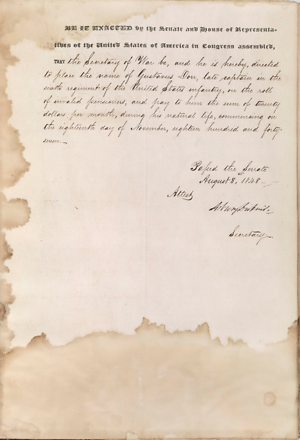 BE IT ENACTED by the Senate and House of Representa-
tives of the United States of America in Congress assembled,
THAT the Secretary of War be, and he is hereby, directed
to place the name of Gustavus Dorr, late captain in the
sixth regiment of the United States infantry, on the roll
of invalid pensioners, and pay to him the sum of twenty
dollars per month, during his natural life, commencing on
the eighteenth day of November, eighteen hundred and forty
seven.
Passed the Senate
August 8, 1848.
Attest,
Asbury Dickins
Secretary